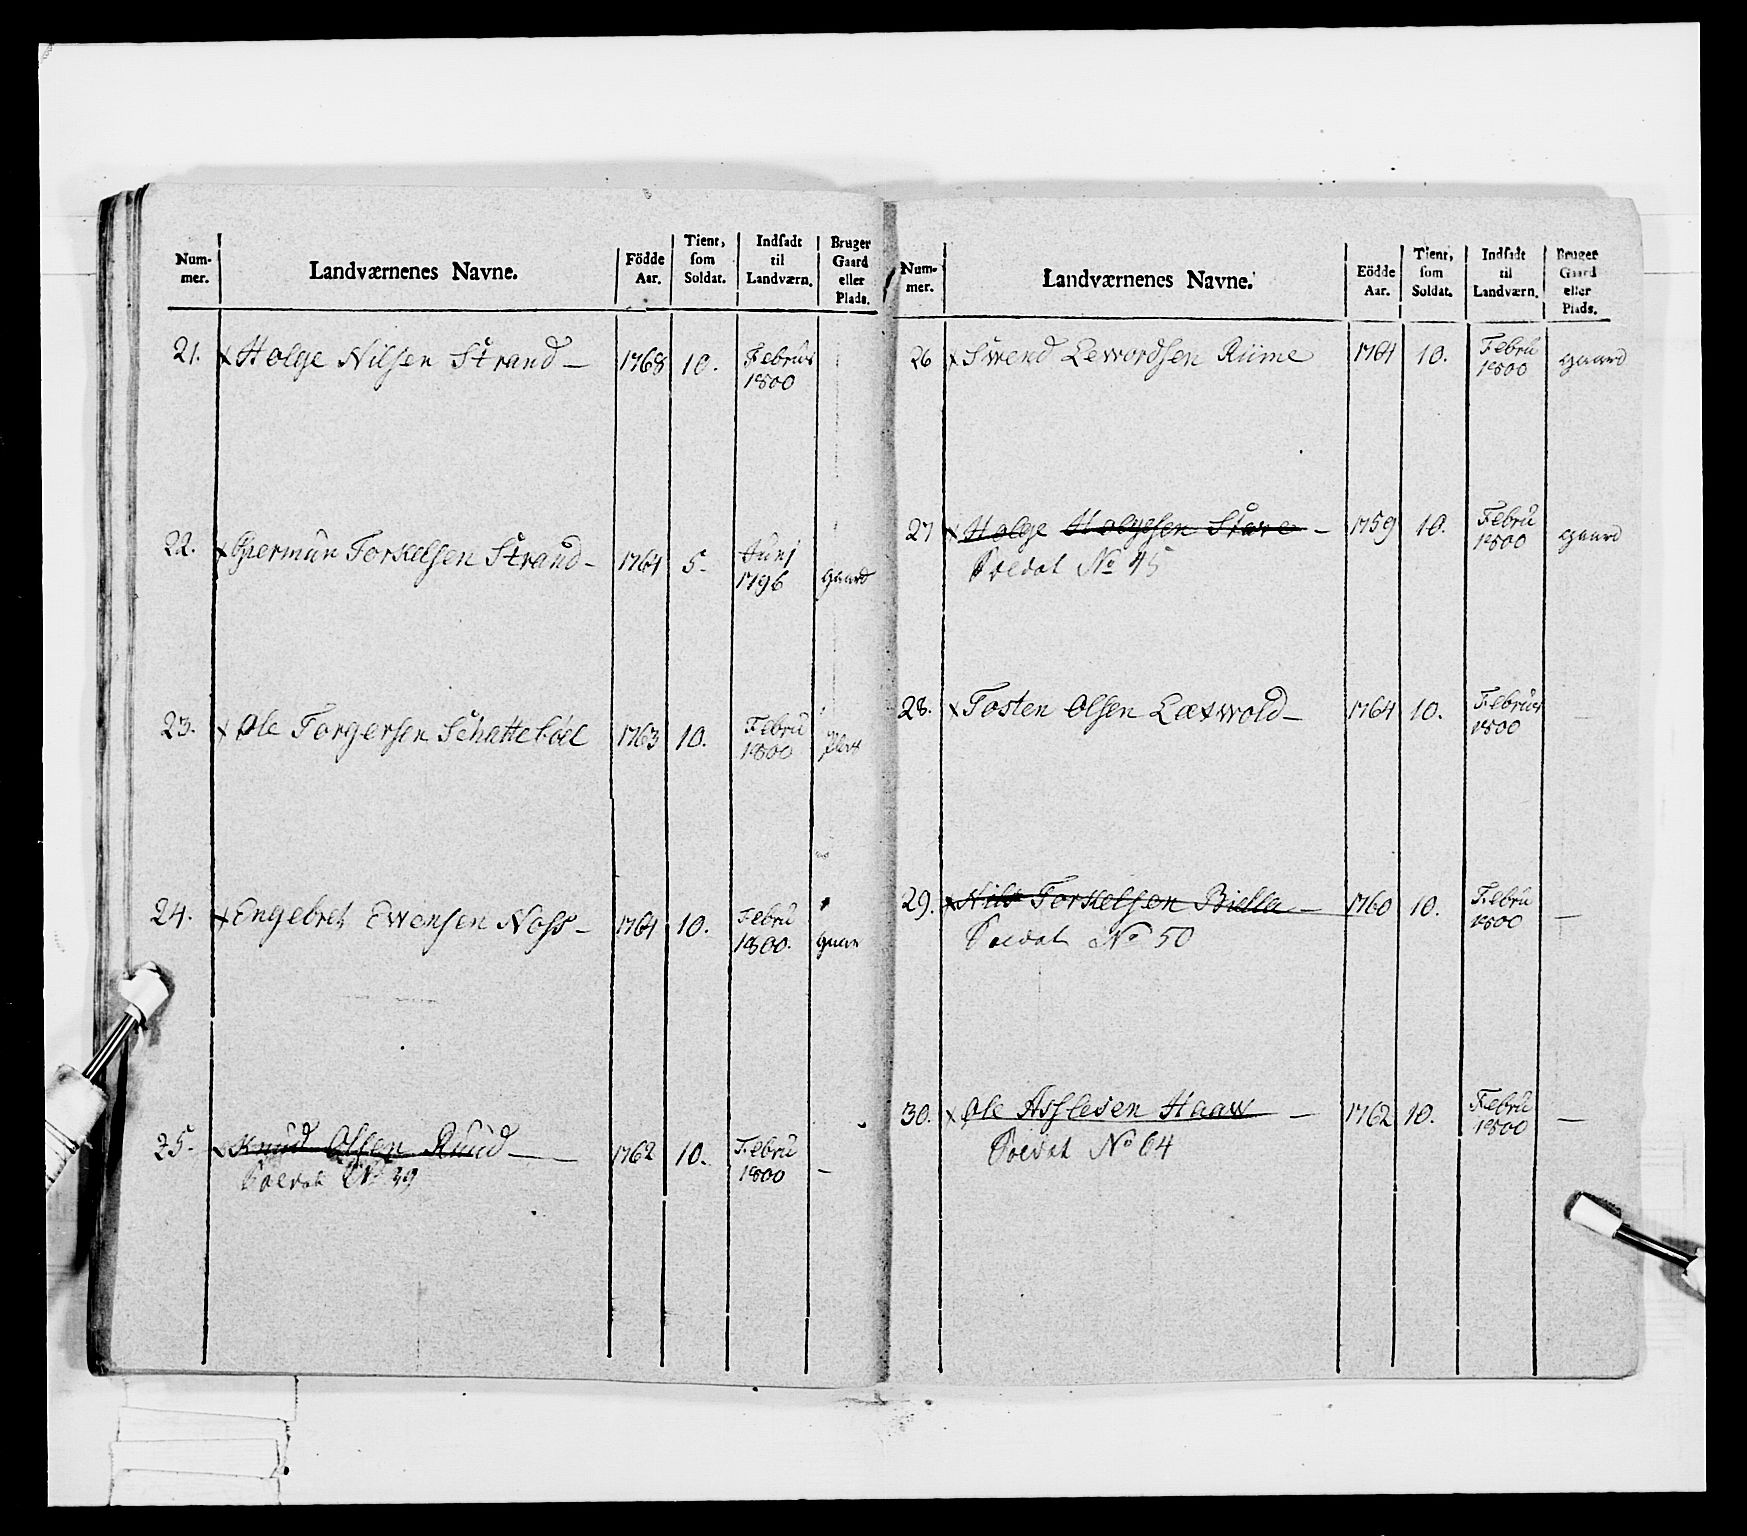 Num-
mer.
Landværnenes Navne.
Födde
Aar.
Tient,
som
Soldat.
Indsadt
til
Landværn.
Bruger
Gaard
eller
Plads.
21. x Holge Nilsen Strand — 1768 10. Februi
1800
22. x Giermün Torkelsen Strand - 1764 5. Juni
1796 gaard
23. x Ole Torgersen Schattebøel 1763 10. Febru
1800
24. x Engebret Ewensen Nass - 1764 10. Febru
1800. gaar
25. x Knud Olsen Ruud — 1762 10. Febru
1800 -
Soldat No 39
Num-
mer.
Landværnenes Navne.
Födde
Aar.
Tient,
som
Soldat.
Indsadt
til
Landværn.
Bruger
Gaard
eller
Plads.
26 x Swend Lewordsen Riime 1764 10. Febru
1800 gaard
27 x Holge Holgesen Stave - 1759 10. Febru
1800 gaard
Soldat No 45
28. x Tosten Olsen Læxwold - 1764 10. Februi
1800 —
29. x Nils Torkelsen Biella - 1760 10. Febru
1800 —
Soldat No 50
30. x Ole Asslesen Haaw — 1762 10. Febru
1800 —
Soldat No 64